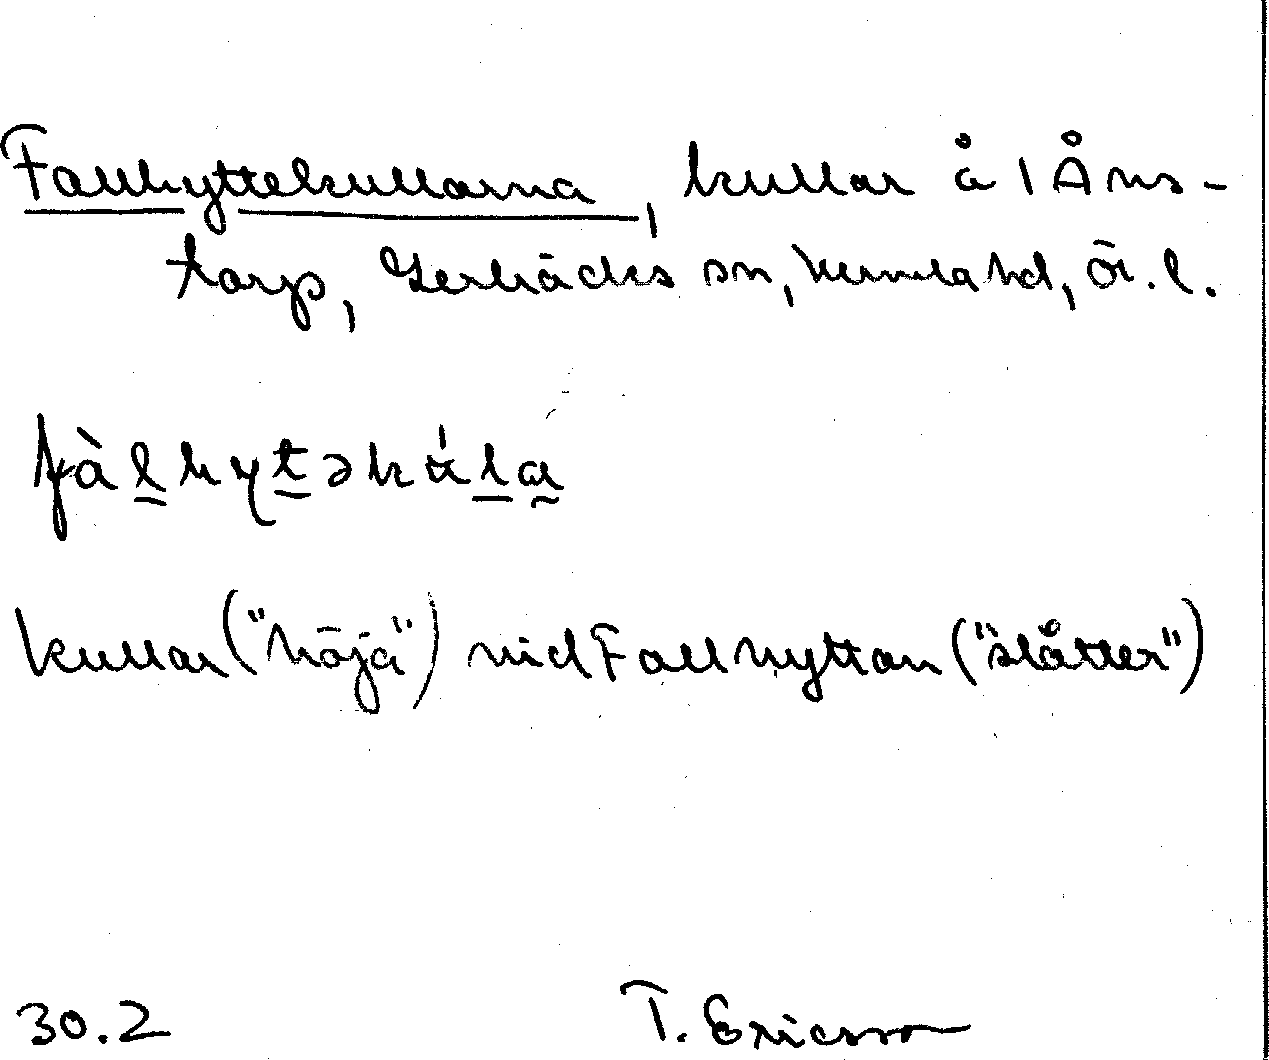 Fallhyttekullarna, kullar å 1 Åns-
torp, Lerbäcks sn, Kumla hd, Ör. l.
fàlhytəkúla
kullar ("höja") vid Fallhyttan ("slåtter")
30.2 T. Ericsson